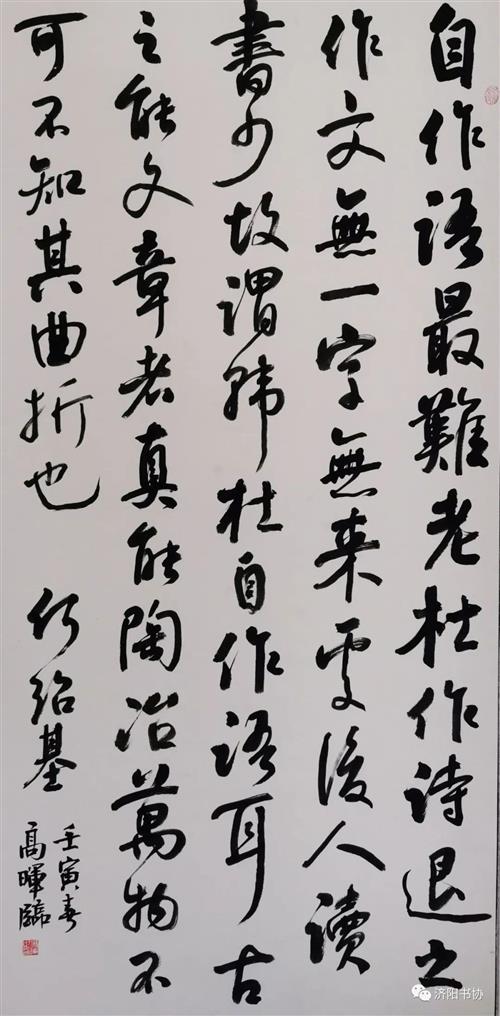 自作语最難老杜作诗退之
作文無一字無来处後人读
書少故谓韩杜自作语耳古
之能文章者真能陶冶萬物不
可不知其曲折也
何绍基
壬寅春
高暉臨
济阳书协